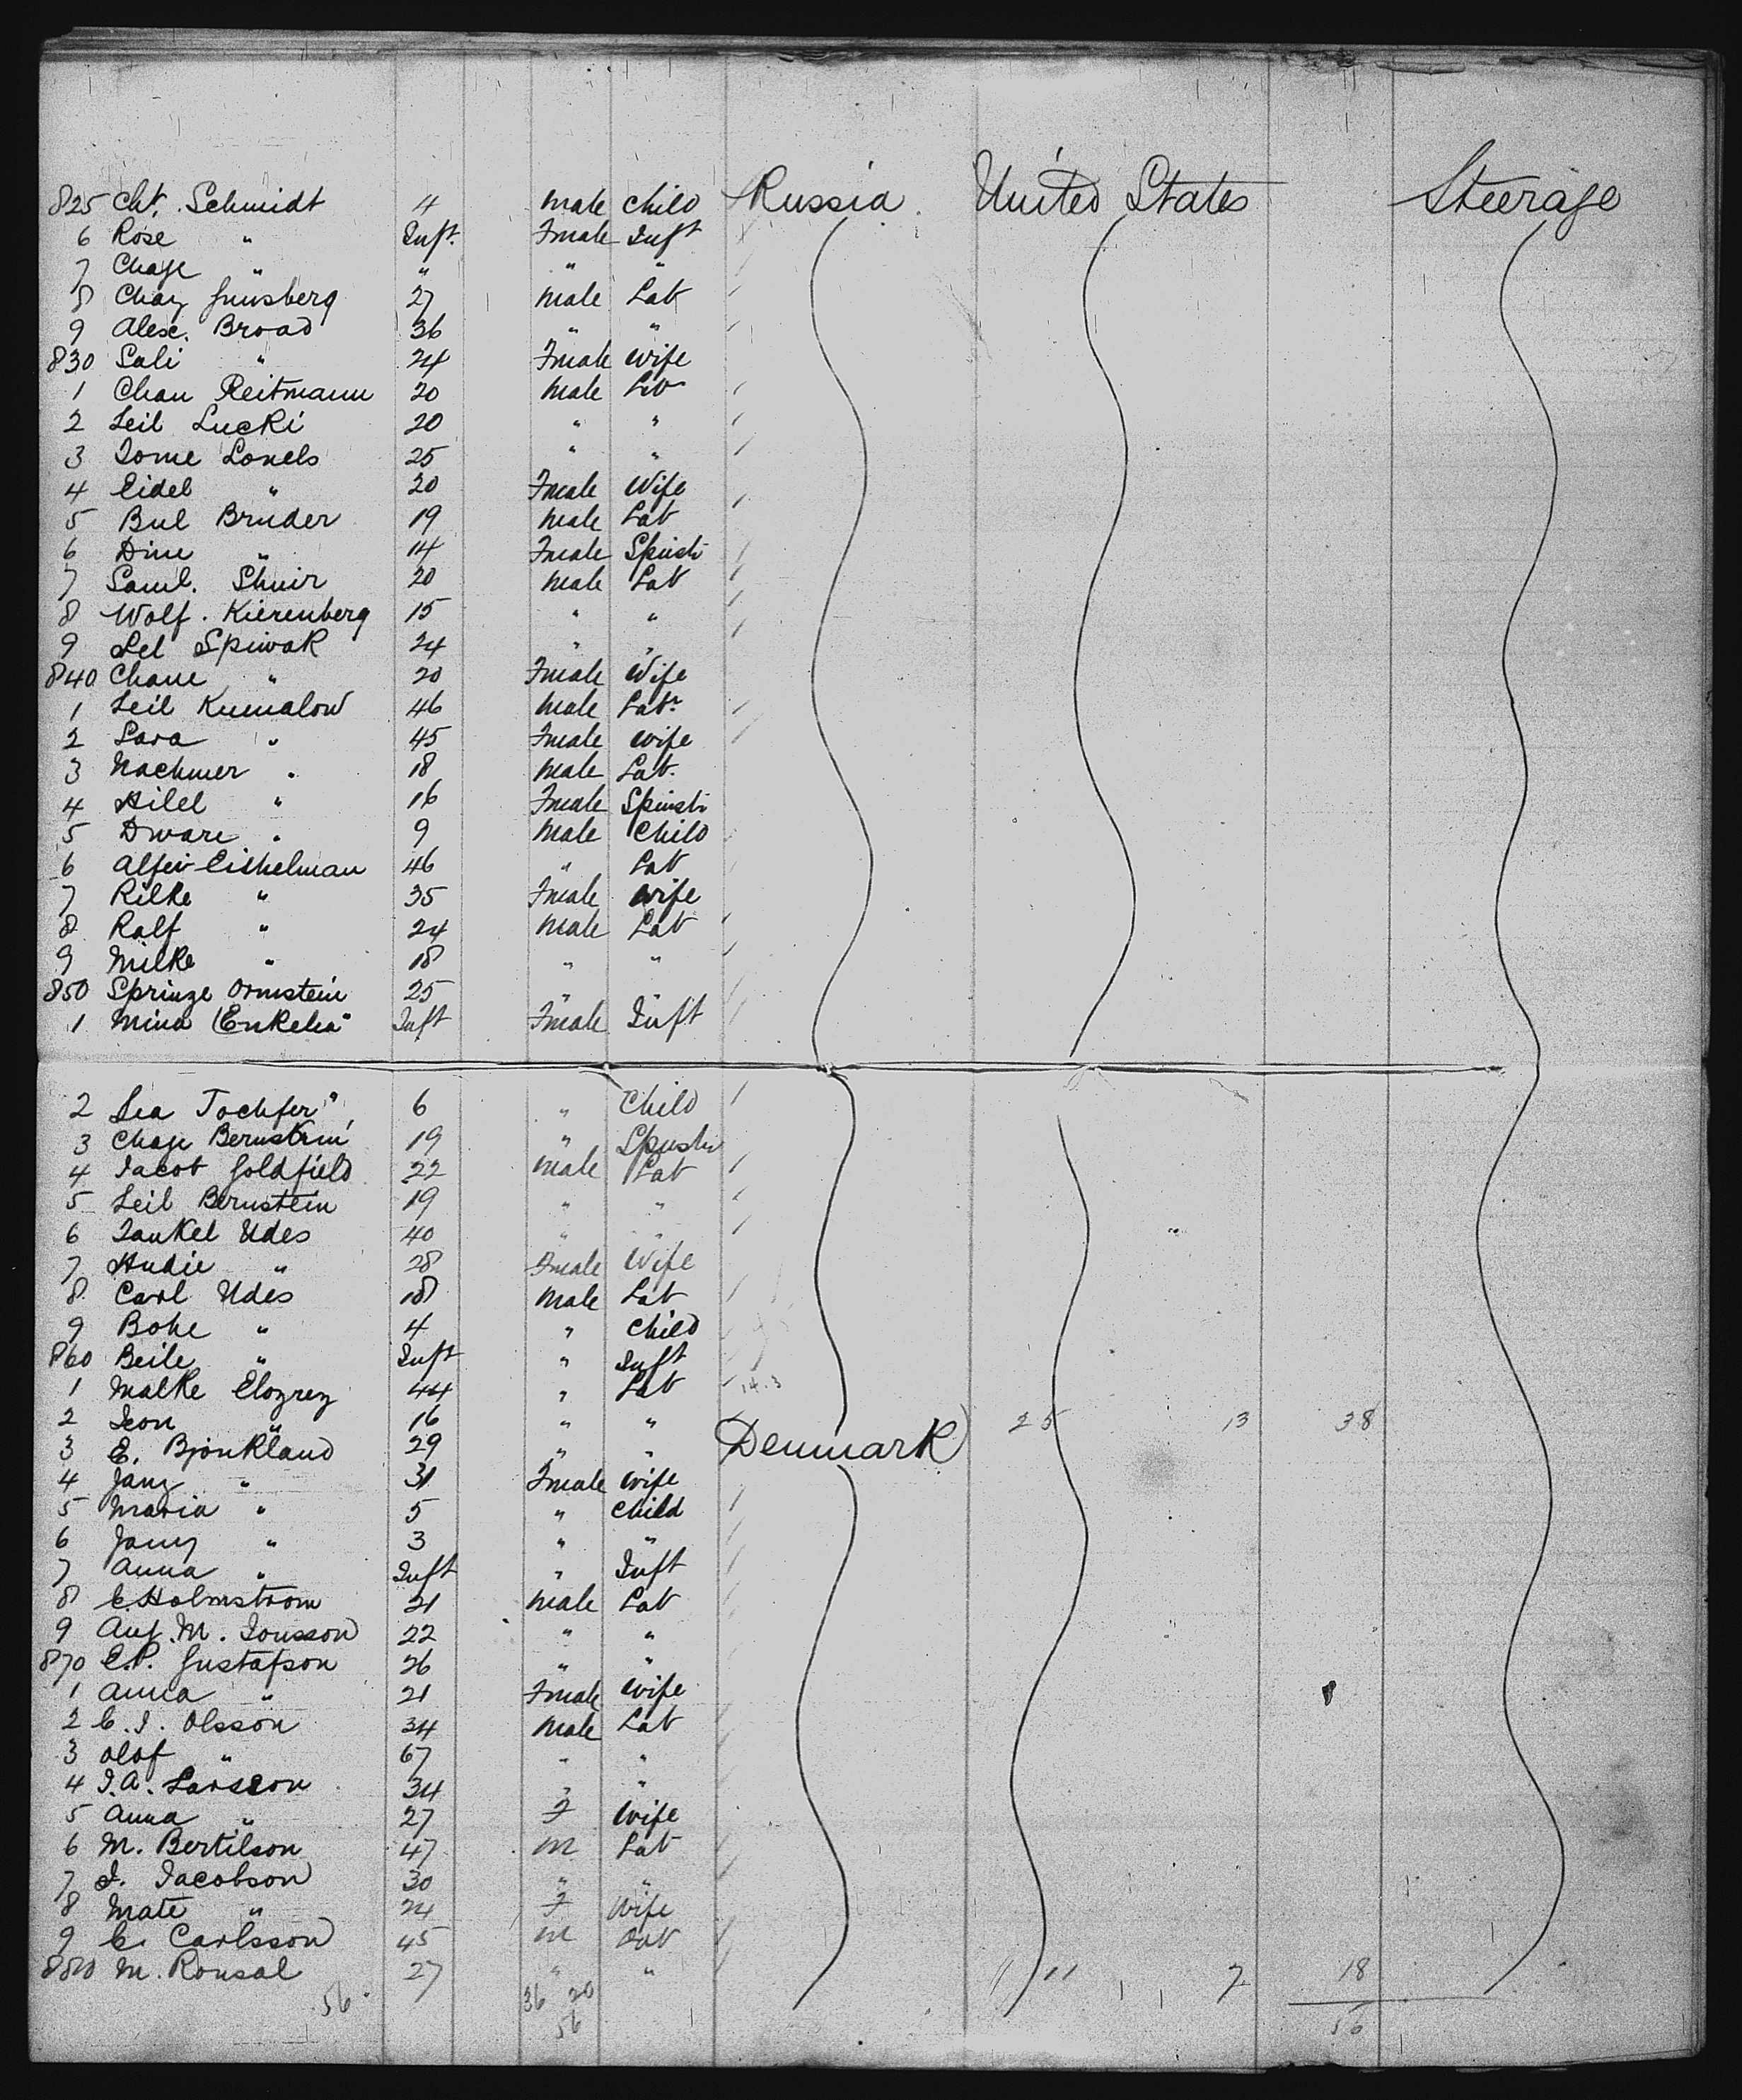 825 Cht. Schmidt 4 Male Child Russia United States Steerage
6 Rose " Inft. Fmale Inft
7 Chaje " " " "
8 Chaz Ginsberg 27 Male Lab
9 Alex. Broad 36 " "
830 Sali " 24 Fmale Wife
1 Chan Reitmann 20 Male Lab
2 Leil Lucki 20 " "
3 Tome Lonels 25 " "
4 Eidel " 20 Fmale Wife
5 Bul Bruder 19 Male Lab
6 Dine " 14 Fmale Spinstr
7 Saml. Shuir 20 Male Lab
8 Wolf. Kierenberg 15 " "
9 Lel Spiwak 24 " "
840 Chane " 20 Fmale Wife
1 Leil Kumalow 46 Male Labr
2 Sara " 45 Fmale Wife
3 Nachmer " 18 Male Lab.
4 Hilel " 16 Fmale Spinstr
5 Dware " 9 Male Child
6 Eishelman 46 " Lab
7 Rilke " 35 Fmale Wife
8 Ralf " 24 Male Lab
9 Milke " 18 " "
850 Sprinze Ornstein 25 " "
1 Mina (Enkelia" Inft Fmale Inft
2 Lea Tochfer" 6 " Child
3 Chaje Bernstein 19 " Spinstr
4 Jacob Goldfield 22 Male Lab
5 Leil Bernstein 19 " "
6 Jankel Udes 40 " "
7 Hudie " 28 Fmale Wife
8 Carl Udes 18 Male Lab
9 Bohe " 4 " Child
860 Beile " Inft " Inft
1 Malke Elozrez 44 " Lab 14.3
2 Leon " 16 " " 25 13 38
3 E. Bjonkland 29 " " Denmark
4 Jany " 31 Fmale Wife
5 Maria " 5 " Child
6 Jany " 3 " "
7 Anna " Inft " Inft
8 C. Holmstrom 21 Male Lab
9 Aug. M. Jonsson 22 " "
870 C.P. Gustafson 26 " "
1 Anna " 21 Fmale Wife
2 C. J. Olsson 34 Male Lab
3 Olof " 67 " "
4 J.A. Larsson 34 " "
5 Anna " 27 F Wife
6 M. Bertilson 47 M Lab
7 J. Jacobson 30 " "
8 Mate " 24 F Wife
9 C. Carlsson 45 M Lab
880 M. Ronsal 27 " " 11 7 18
56 36 20 56
56